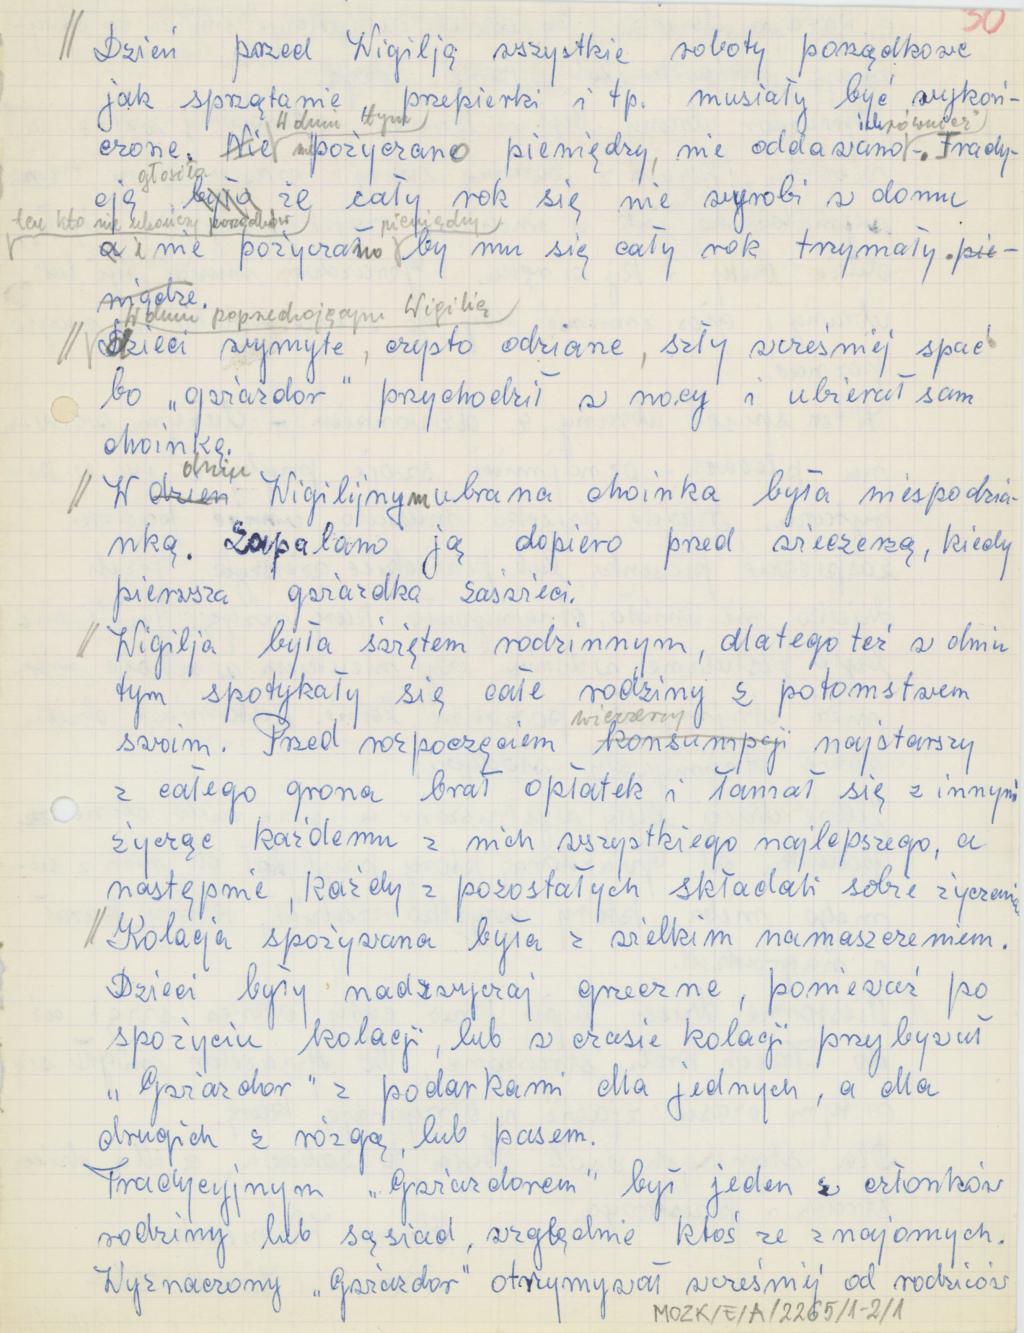 30
// Dzień przed Wigilją wszystkie roboty porządkowe
jak sprzątanie, przepierki i tp. musiały być wykoń-
W dniu tym ich również
czone. Nie pożyczano pieniędzy, nie oddawano. Trady-
głosiła
cją była że cały rok się nie wyrobi w domu
ten kto nie ukończy porządków pieniądze
a i nie pożyczano by mu się cały rok trzymały. pie-
niądze.
W dniu poprzedzającym Wigilię
// Dzieci wymyte, czysto odziane, szły wcześniej spać
bo „gwiazdor" przychodził w nocy i ubierał sam
choinkę.
dniu
// W dzień Wigilijnym ubrana choinka była niespodzia-
nką. Zapalano ją dopiero przed wieczerzą, kiedy
pierwsza gwiazdka zaświeci.
// Wigilja była świętem rodzinnym, dlatego też w dniu
tym spotykały się całe rodziny z potomstwem
wieczerzy
swoim. Przed rozpoczęciem konsumpcji najstarszy
z całego grona brał opłatek i łamał się z innymi
życząc każdemu z nich wszystkiego najlepszego, a
następnie, każdy z pozostałych składali sobie życzenia
// Kolacja spożywana była z wielkim namaszczeniem.
Dzieci były nadzwyczaj grzeczne, ponieważ po
spożyciu kolacji, lub w czasie kolacji przybywał
„Gwiazdor" z podarkami dla jednych, a dla
drugich z rózgą, lub pasem.
Tradycyjnym „Gwiazdorem" był jeden z członków
rodziny lub sąsiad, względnie ktoś ze znajomych.
Wyznaczony „Gwiazdor" otrzymywał wcześniej od rodziców
MOZK/E/A/2265/1-2/1